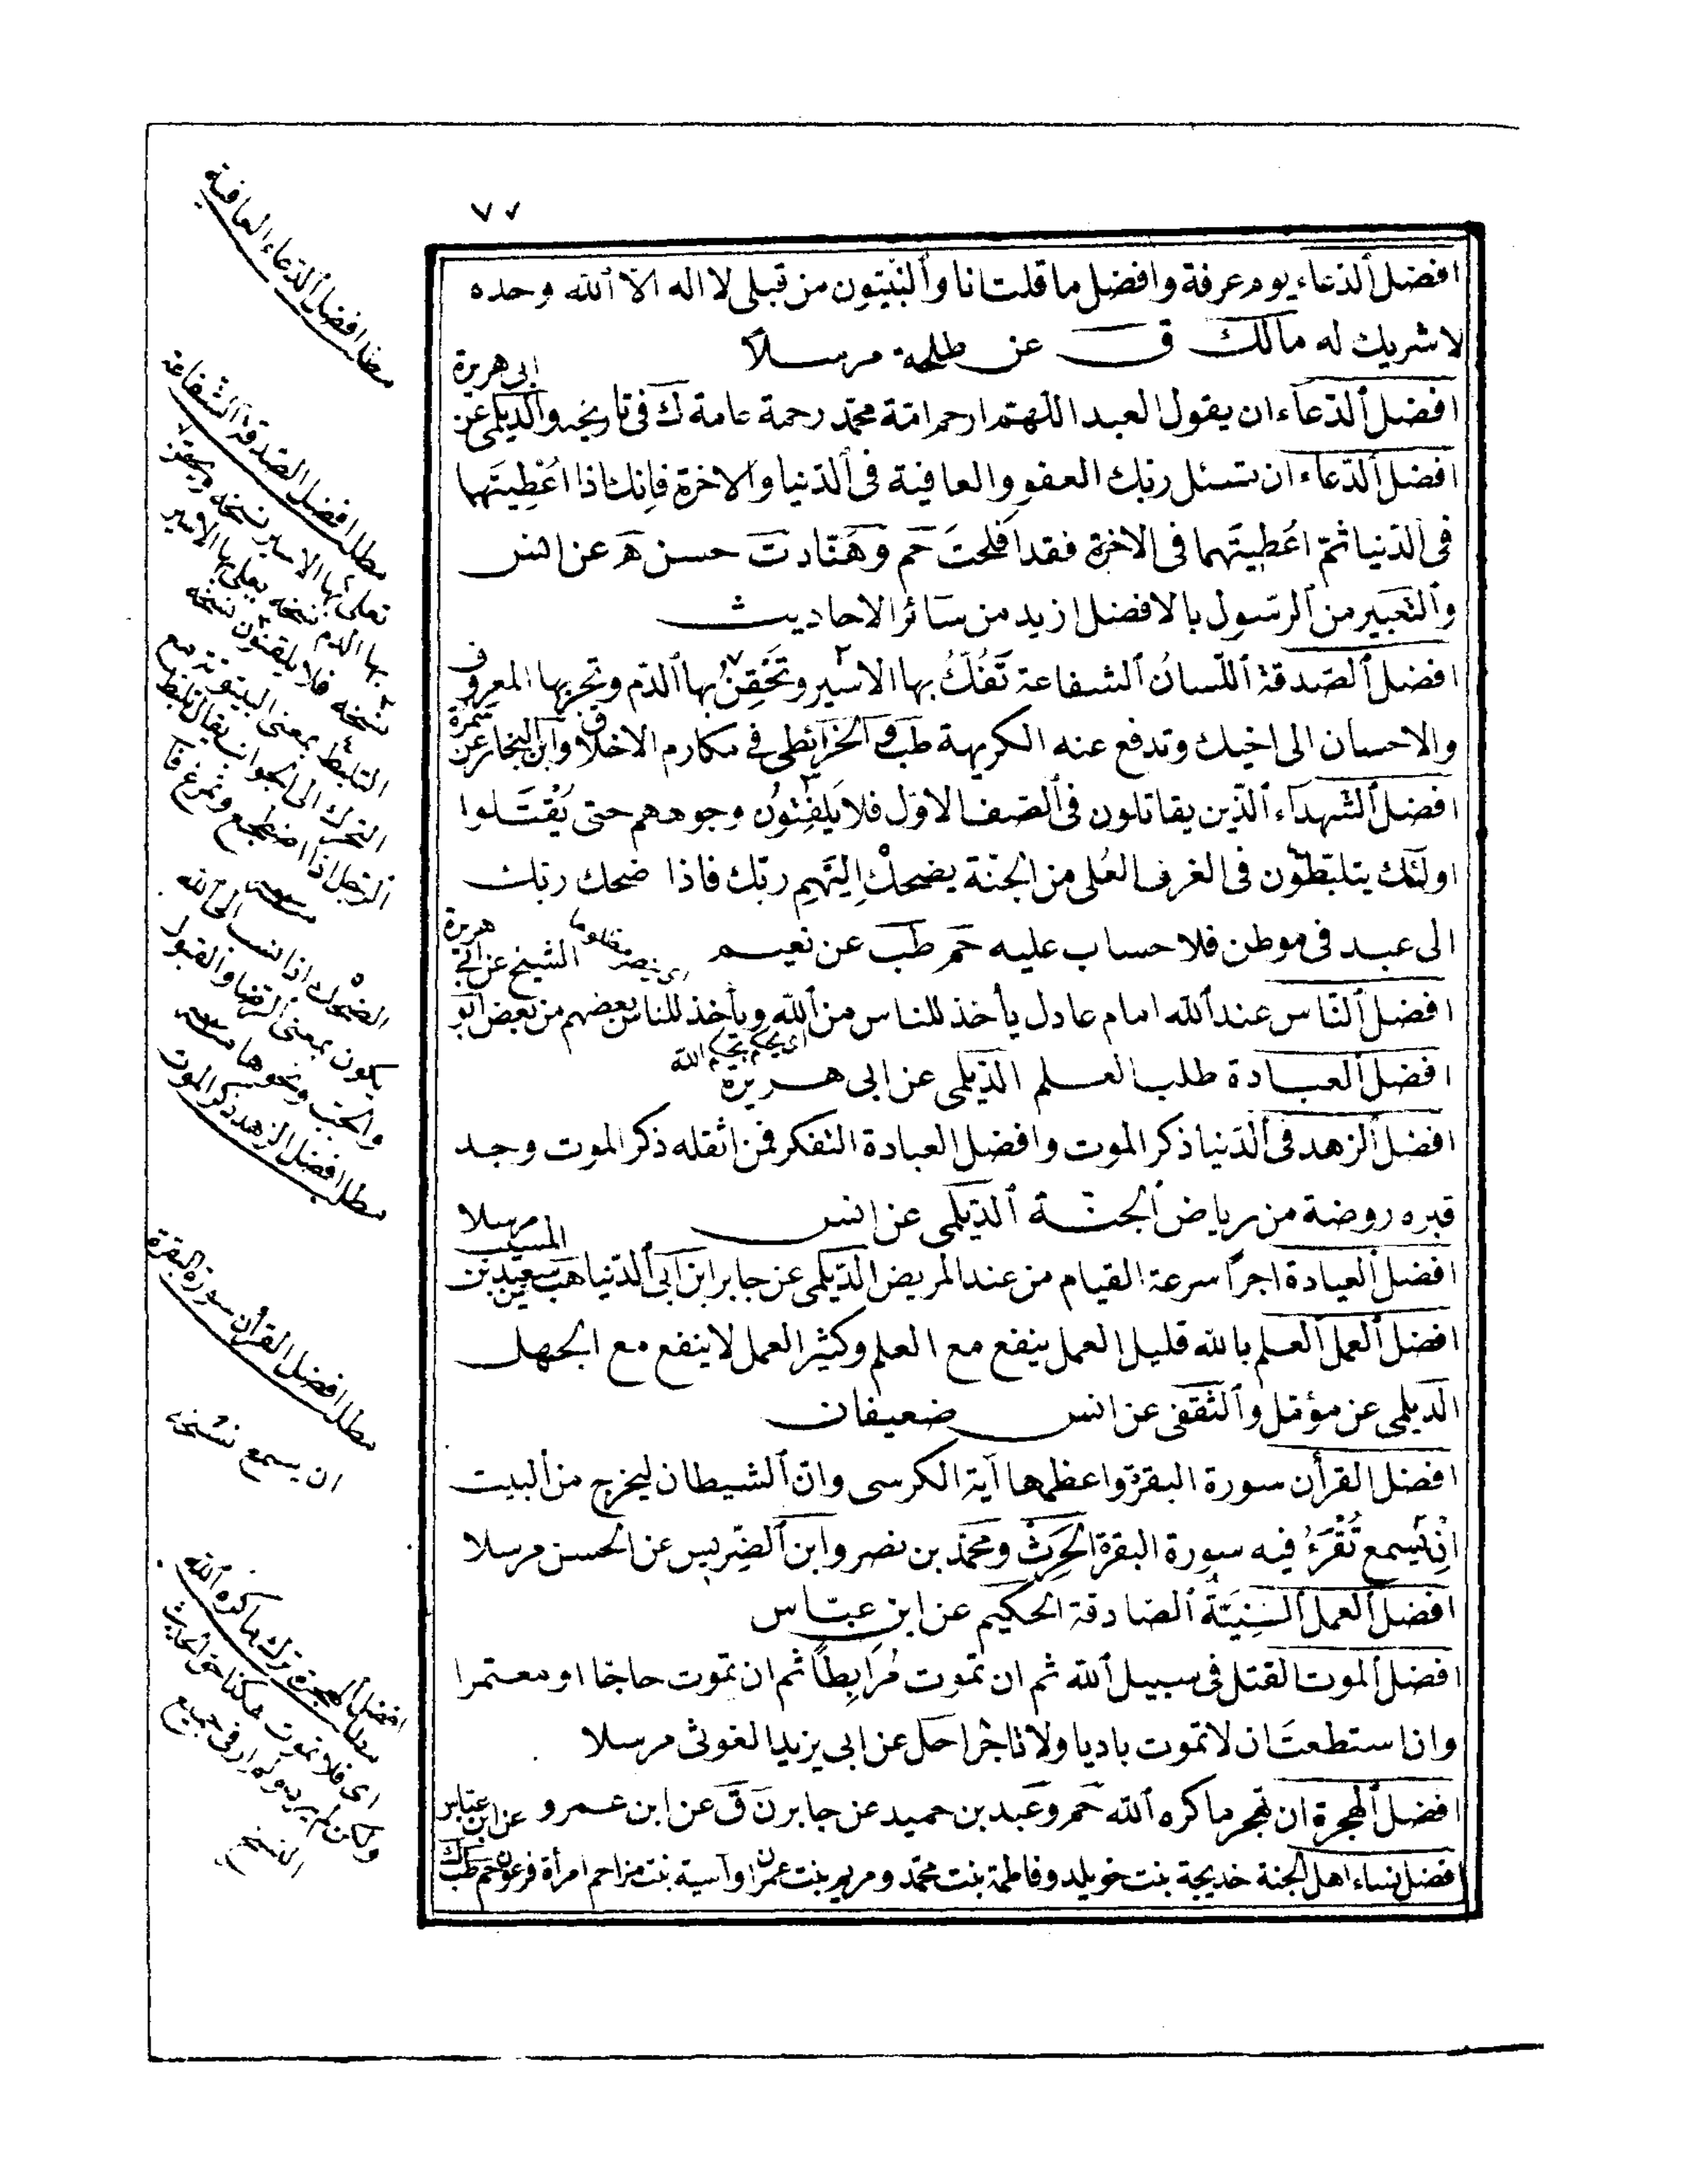 ٧٧
افضل ألدّعاء يوم عرفة وافضل ما قلت انا وألنّبيّون من قبلى لا اله الاّ ألله وحده
لا شريك له مالك ق عن طلحة مرسلاً
افضل ألدّعاء ان يقول العبد اللّهمّ ارحم امّة محمّد رحمة عامة ك فى تاريخه والدّيلمى عن ابى هريرة
افضل ألدّعاء ان تسئل ربّك العفو والعافية فى ألدّنيا والاخرة فاِنك اذا اعُطِيتَهما
فى الدّنيا ثمّ اعُطيتَهما فى الاخرة فقد افلحتَ حم وهَنّاد ت حسن ه عن انس
وألتعبير من ألرسول بالافضل ازيد من سائر الاحاديث
افضل ألصّدقة أللّسانُ ألشفاعة تَفُكُّ بها الاسير وتَحْقِنُ بها ألدّم وتجرّ بها المعروف
والاحسان الى اخيك وتدفع عنه الكريهة طب والخرائطى فى مكارم الاخلاق وابن النجار عن سمرة
افضل ألشهداء ألّذين يقاتلون فى ألصّف الاوّل فلا يَلفِتوُن وجوههم حتى يُقتَلوا
اولئك يتلبّطوّن فى الغرف العُلى من الجنّة يضحك اِليَهِم ربّك فاذا ضحك ربّك
الى عبد فى موطن فلا حساب عليه حم طب عن نعيم
افضل ألنّاس عند ألله امام عادل يأخذ للناس من ألله ويأخذ للناس بعضهم من بعض ابو الشيخ عن ابى هريرة
افضل ألعبادة طلب العلم الدّيلمى عن ابى هريرة
افضل ألزهد فى ألدّنيا ذكر الموت وافضل العبادة التفكر فمن اثقله ذكر الموت وجد
قبره روضة من رياض ألجنّة ألدّيلمى عن انس
افضل ألعيادة اجراً سرعة القيام من عند المريض الدّيلمى عن جابر ابن ابى ألدّنيا هب عن سعيد بن المسيب مرسلا
افضل ألعمل ألعلم بالله قليل العمل ينفع مع العلم وكثير العمل لا ينفع مع الجهل
الدّيلمى عن مؤمّل وألثّقفى عن انس ضعيفان
افضل القرأن سورة البقرة واعظمها آية الكرسى وانّ ألشيطان ليخرج من ألبيت
اِنْ يسمع تُقْرَءُ فيه سورة البقرة الحَرِث ومحمّد بن نصر وابن ألضّريس عن الحسن مرسلا
افضل ألعمل ألنّيّةُ ألصّادقة الحكيم عن ابن عبّاس
افضل ألموت القتل فى سبيل ألله ثم ان تموت مُرَابِطاً ثم ان تموت حاجّا او معتمرا
وان استطعتَ ان لا تموت باديا ولا تاجرا حل عن ابى يزيد الغوثى مرسلا
افضل ألهجرة ان تهجر ما كره ألله حم وعَبد بن حميد عن جابر ن ق عن ابن عمرو
افضل نساء اهل الجنة خديجة بنت خويلد وفاطمة بنت محمّد ومريم بنت عمران وآسية بنت مزاحم امرأة فرعون حم طب ك عن ابن عبّاس
مطلب افضل ألدّعاء العافية
مطلب افضل الصّدقة ألشفاعة
بها الدم نسخه
نسخه فلا يلفتون نسخه
التلبط بمعنى البيتوتة مع
التحرك الى الجوانب يقال تلبّط
ألرجل اذا اضطجع وتمرغ
الضحك اذا نسب الى ألله
يكون بمعنى ألرّضا والقبول
والحبّ ونحوها
مطلب افضل الزهد ذكر الموت
مطلب افضل القرأن سورة البقرة
ان يسمع نسخه
افضل ألهجرة ترك ما كره ألله